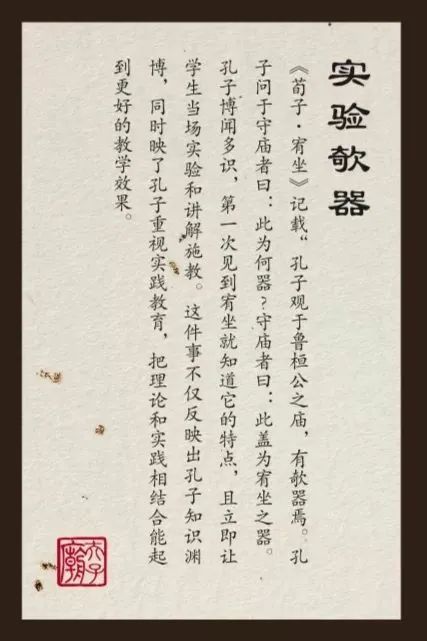 实验欹器
《荀子·宥坐》记载“孔子观于鲁桓公之庙，有欹器焉。孔
子问于守庙者曰：此为何器？守庙者曰：此盖为宥坐之器。
孔子博闻多识，第一次见到宥坐就知道它的特点，且立即让
学生当场实验和讲解施教。这件事不仅反映出孔子知识渊
博，同时映了孔子重视实践教育，把理论和实践相结合能起
到更好的教学效果。